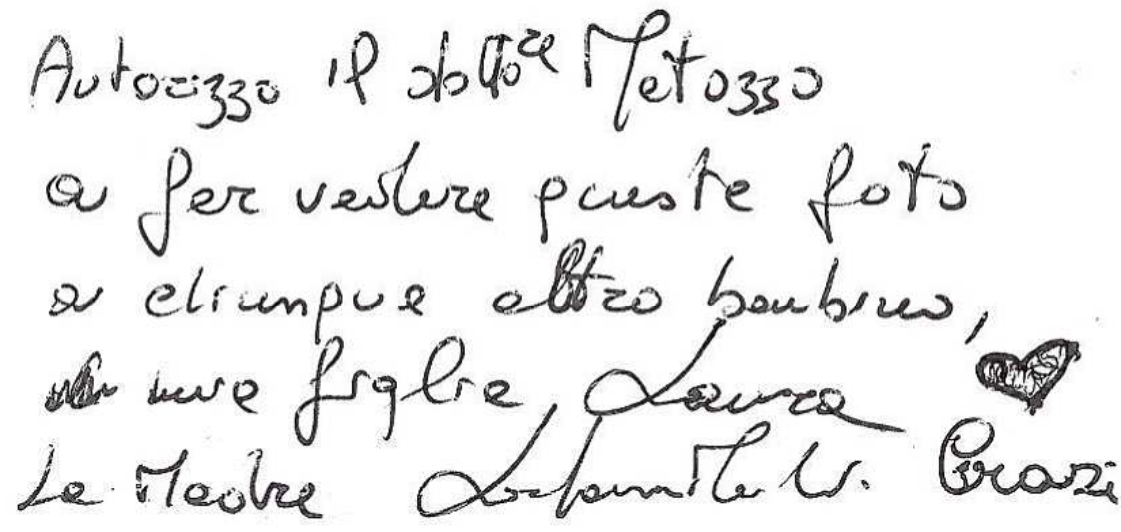 Autorizzo il dott.re Metozzo
a far vedere queste foto
a chiunque altro bambino,
mia figlia, Laura
La Madre Grazie